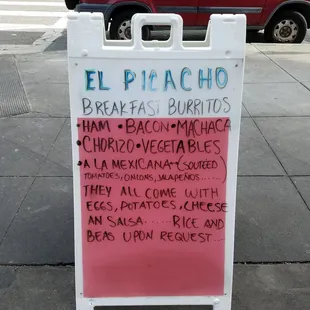 EL PICACHO
BREAKFAST BURRITOS
•HAM •BACON•MACHACA
•CHORIZO•VEGETABLES
•A LA MEXICANA-(SOUTEED
TOMATOES, ONIONS, JALAPEÑOS.....
THEY ALL COME WITH
EGGS, POTATOES, CHEESE
AN SALSA..... RICE AND
BEAS UPON REQUEST....